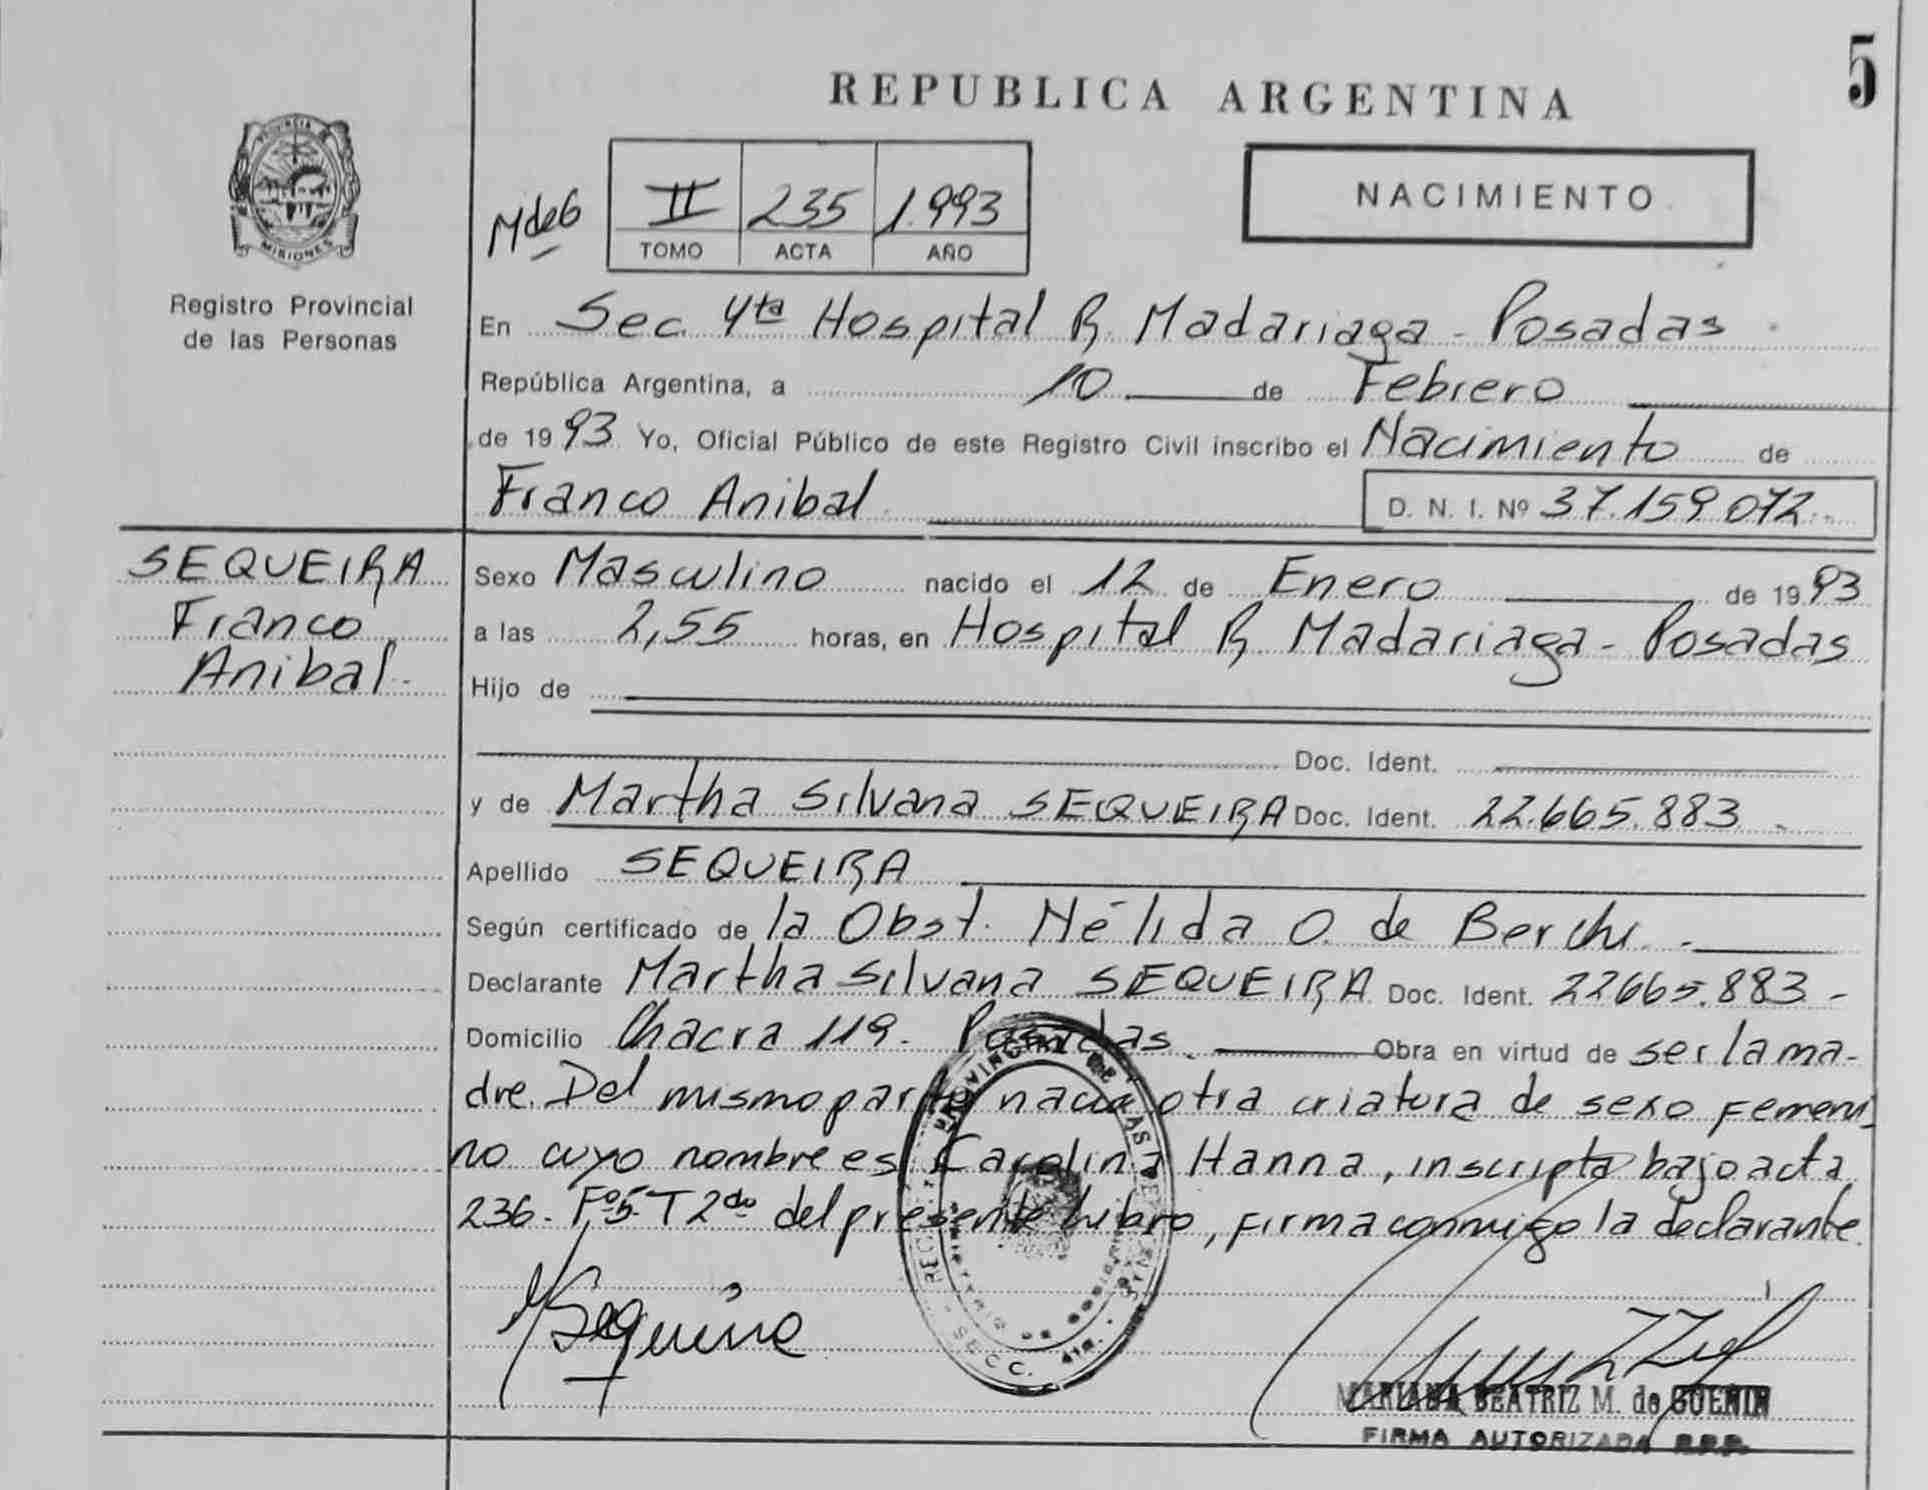 5
REPUBLICA ARGENTINA
PROVINCIA DE
MISIONES
Registro Provincial
de las Personas
MdeG
II 235 1.993
TOMO ACTA AÑO
NACIMIENTO
En Sec. 4ta Hospital R. Madariaga - Posadas
República Argentina, a 10 de Febrero
de 1993 Yo, Oficial Público de este Registro Civil inscribo el Nacimiento de
Franco Anibal D. N. I. Nº 37.159.072
SEQUEIRA
Franco
Anibal.
Sexo Masculino nacido el 12 de Enero de 1993
a las 2,55 horas, en Hospital R. Madariaga - Posadas
Hijo de
Doc. Ident.
y de Martha Silvana SEQUEIRA Doc. Ident. 22.665.883
Apellido SEQUEIRA
Según certificado de la Obst. Nélida O. de Berchi.
Declarante Martha Silvana SEQUEIRA Doc. Ident. 22665.883 -
Domicilio Chacra 119. Posadas. Obra en virtud de ser la ma-
dre. Del mismo parto nacio otra criatura de sexo femeni
no cuyo nombre es Carolina Hanna, inscripta bajo acta
236. Fº5. T 2do del presente libro, firma conmigo la declarante.
MSequeira
PROVINCIAL DE LAS PERSONAS
SECC. 4ta.
MARIANA BEATRIZ M. de GUENIN
FIRMA AUTORIZADA R.P.P.